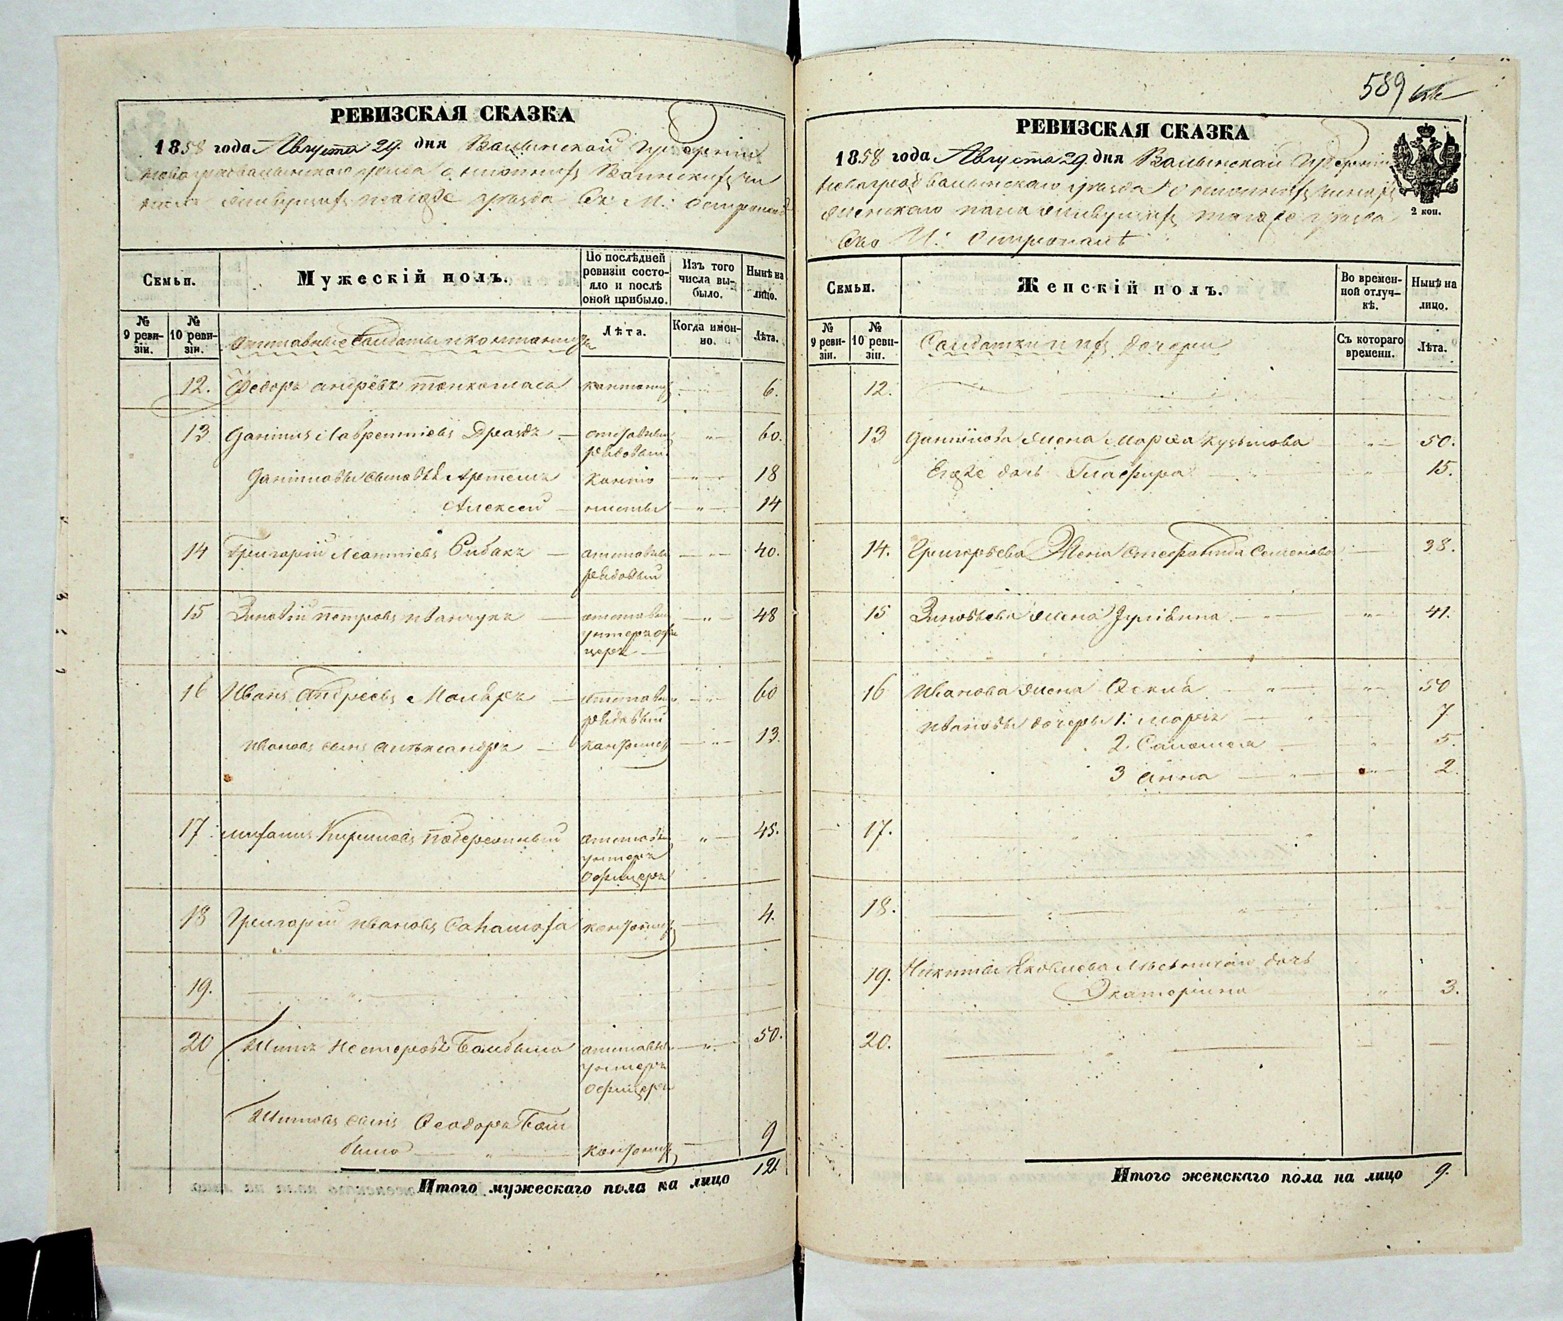 РЕВИЗСКАЯ СКАЗКА
1858 года Августа 29 дня Волынской Губернии
Новоградволынскаго уезда о нижних Воинских чи
нах живущих того же уезда в М: Острополе
Семьи.
Мужескій полъ.
По послѣдней ревизіи состояло и послѣ оной прибыло.
Изъ того числа выбыло.
Нынѣ на лицо.
№ 9 ревизіи.
№ 10 ревизіи.
Отставные Солдаты и кантонисты
Лѣта.
Когда именно.
Лѣта.
12. Федоръ Андреевъ кантонис 6.
13 Данила Лаврентіевъ Дроздъ — отставный рядовый " 60.
Даниловы сыновья Артемъ канто " 18
Алексей нисты " 14
14 Григорій Леонтіевъ Рибакъ — отставны рядовый " 40.
15 Зиновій Петровъ Иванчукъ — отставны унтеръ офи церъ " 48
16 Иванъ Андреевъ Маляръ — отставны рядовый " 60
Ивановъ сынъ Александръ — кантонис " 13.
17. Кириловъ Побережный отставн унтеръ Офицеръ " 45.
18 Григорій Ивановъ кантонис 4.
19.
20 Титъ Несторовъ отставны унтеръ офицеръ " 50.
Титовъ сынъ Феодоръ
кантонис 9
Итого мужескаго пола на лицо 12.
589
РЕВИЗСКАЯ СКАЗКА
1858 года Августа 29 дня Волынской Губернии
Новоградволынскаго уезда о нижних чинах
женскаго пола живущих того же уезда
въ М: Острополѣ
2 коп.
Семьи.
Женскій полъ.
Во временной отлучкѣ.
Нынѣ на лицо.
№ 9 ревизіи.
№ 10 ревизіи.
Солдатки и их дочери
Съ котораго времени.
Лѣта.
12.
13 Данилова жена Марѳа Кузьмова " 50.
Его же дочь Глафира 15.
14. Григорьева Жена Стефанида Семенова 38.
15 Зиновьева жена Іуліанна " 41.
16 Иванова жена " 50
Ивановы дочери 1: Маря 7
2. Саломея " 5.
3 Анна " 2.
17.
18.
19. Никиты Яковлева дочь
Екатерина " 3.
20.
Итого женскаго пола на лицо 9.